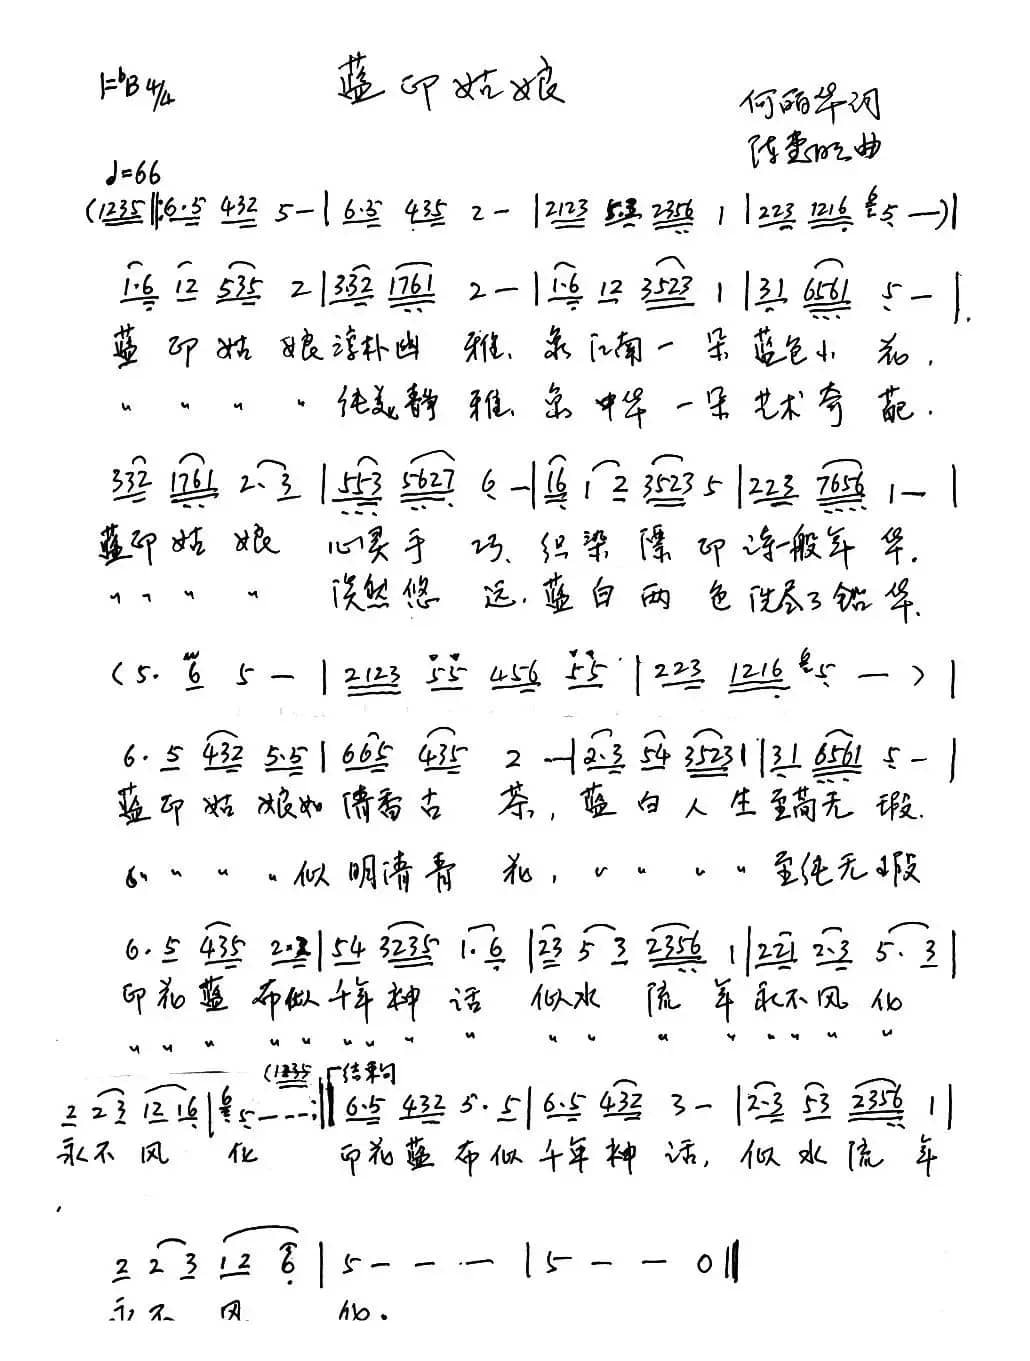 1=ᵇB 4/4 蓝印姑娘
何丽华词
曲
♩=66
(1235‖:6·5 432 5-|6·5 435 2-|2123 5·3 2356 1|223 1216 6 5 —)|
1·6 12 535 2|332 1761 2-|1·6 12 3523 1|31 6561 5-|
蓝印姑娘淳朴幽雅、象江南一朵蓝色小花,
〃〃〃〃纯美静雅、象中华一朵艺术奇葩.
332 1761 2·3|553 5627 6-|16 12 3523 5|223 7656 1-|
蓝印姑娘 心灵手巧、织染漂印诗一般年华.
〃〃〃〃 淡然悠远.蓝白两色洗尽了铅华.
(5·6 5-|2123 55 456 55|223 1216 6 5 —)|
6·5 432 5·5|665 435 2-|2·3 54 3523 1|31 6561 5-|
蓝印姑娘如清香古茶,蓝白人生至简无瑕.
〃〃〃〃似明清青花,〃〃〃〃至纯无瑕
6·5 435 2·2|54 3235 1·6|23 53 2356 1|221 2·3 5·3|
印花蓝布似千年神话 似水流年永不风化
〃〃〃〃〃〃〃〃〃〃〃〃〃〃〃〃〃
(1235 结束句
2 23 12 16|6 5---:‖6·5 432 5·5|6·5 432 3-|2·3 53 2356 1|
永不风化 印花蓝布似千年神话,似水流年
2 23 12 6|5---|5--0‖
永不风化.